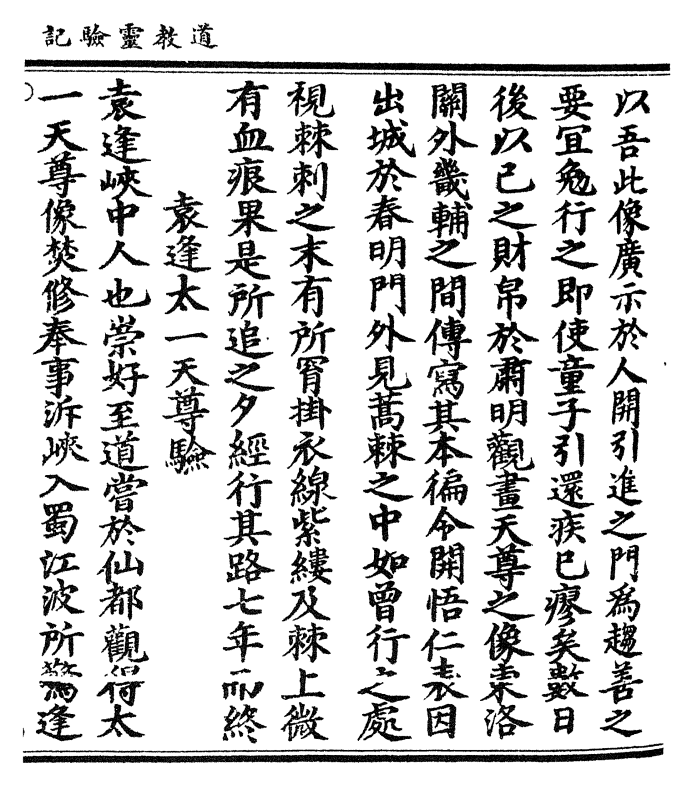 道教靈驗記
以吾此像廣示於人開引進之門爲趨善之
要宜勉行之即使童子引還疾已瘳矣數日
後以己之財帛於肅明觀畫天尊之像東洛
關外畿輔之間傳寫其本徧令開悟仁表因
出城於春明門外見蒿棘之中如曾行之處
視棘刺之末有所罥掛衣線紫縷及棘上微
有血痕果是所追之夕經行其路七年而終
袁逢太一天尊驗
袁逢峽中人也崇好至道嘗於仙都觀得太
一天尊像焚修奉事泝峽入蜀江波所驚逢